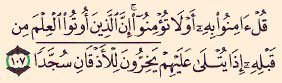 قُلۡ ءَامِنُواْ بِهِۦٓ أَوۡ لَا تُؤۡمِنُوٓاْۚ إِنَّ ٱلَّذِينَ أُوتُواْ ٱلۡعِلۡمَ مِن
قَبۡلِهِۦٓ إِذَا يُتۡلَىٰ عَلَيۡهِمۡ يَخِرُّونَۤ لِلۡأَذۡقَانِۤ سُجَّدٗا ١٠٧